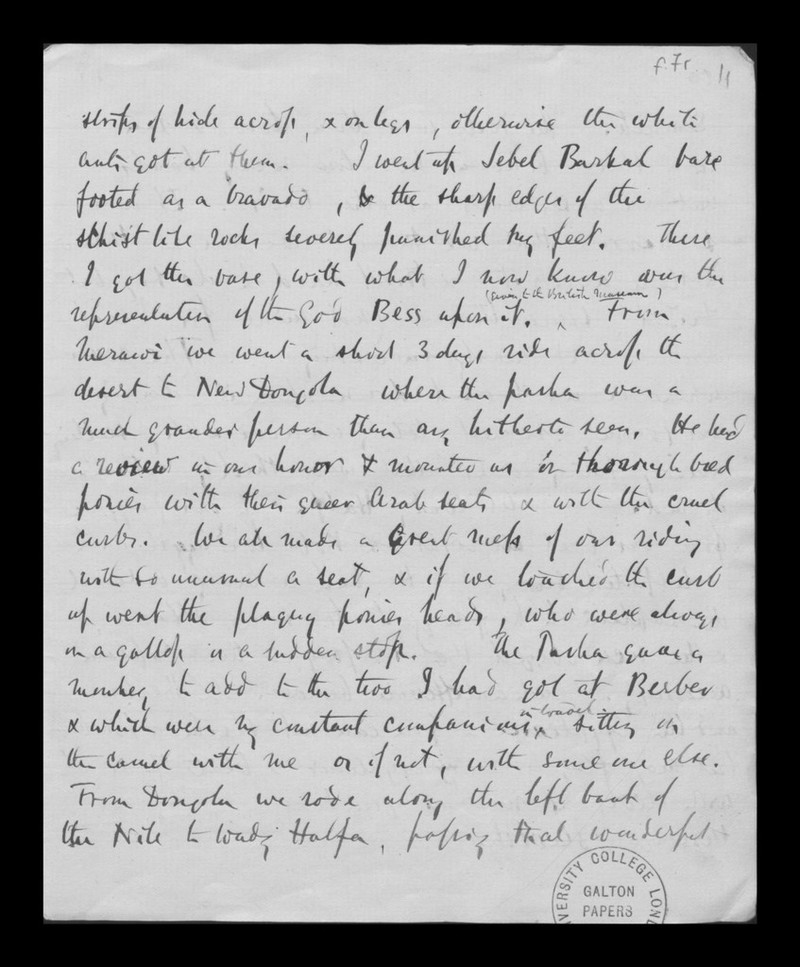 f. 7r 11
strips of hide across, & on legs, otherwise the white
ants got at them. I went up Jebel Barkal bare
footed as a bravado, & the sharp edges of the
schist like rocks severely punished my feet. There
I got the vase, with what I now know was the
(given to the British Museum)
representation of the God Bess upon it. ^ From
Merawi we went a short 3 days ride across the
desert to New Dongola where the pasha was a
much grander person than any hitherto seen. He had
a review in our honor & mounted us on thorough bred
ponies with their queer Arab seats & with the cruel
curbs. We all made a great mess of our riding
with so unusual a seat, & if we touched the curb
up went the plaguy ponies heads, who were always
on a gallop or a sudden stop. The Pasha gave a
monkey, to add to the two I had got at Berber
in travel
& which were my constant companions, ^ sitting on
the camel with me or if not, with some one else.
From Dongola we rode along the left bank of
the Nile to Wady Halfa, passing that wonderful
UNIVERSITY COLLEGE LOND
GALTON
PAPERS